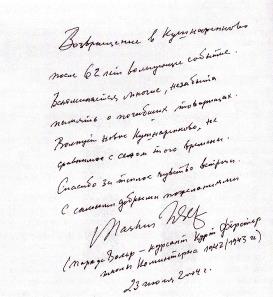 Возвращение в Кушнаренково
после 62 лет волнующее событие.
Вспоминается многое, незабыта
память о погибших товарищах.
Волнует новое Кушнаренково, не
сравнимое с селом того времени.
Спасибо за теплое чувство встречи.
С самыми добрыми пожеланиями
Markus Wolf
(Маркус Вольф – курсант Курт Фёрстер
школы Коминтерна 1942/1943 гг)
23 июня 2004 г.